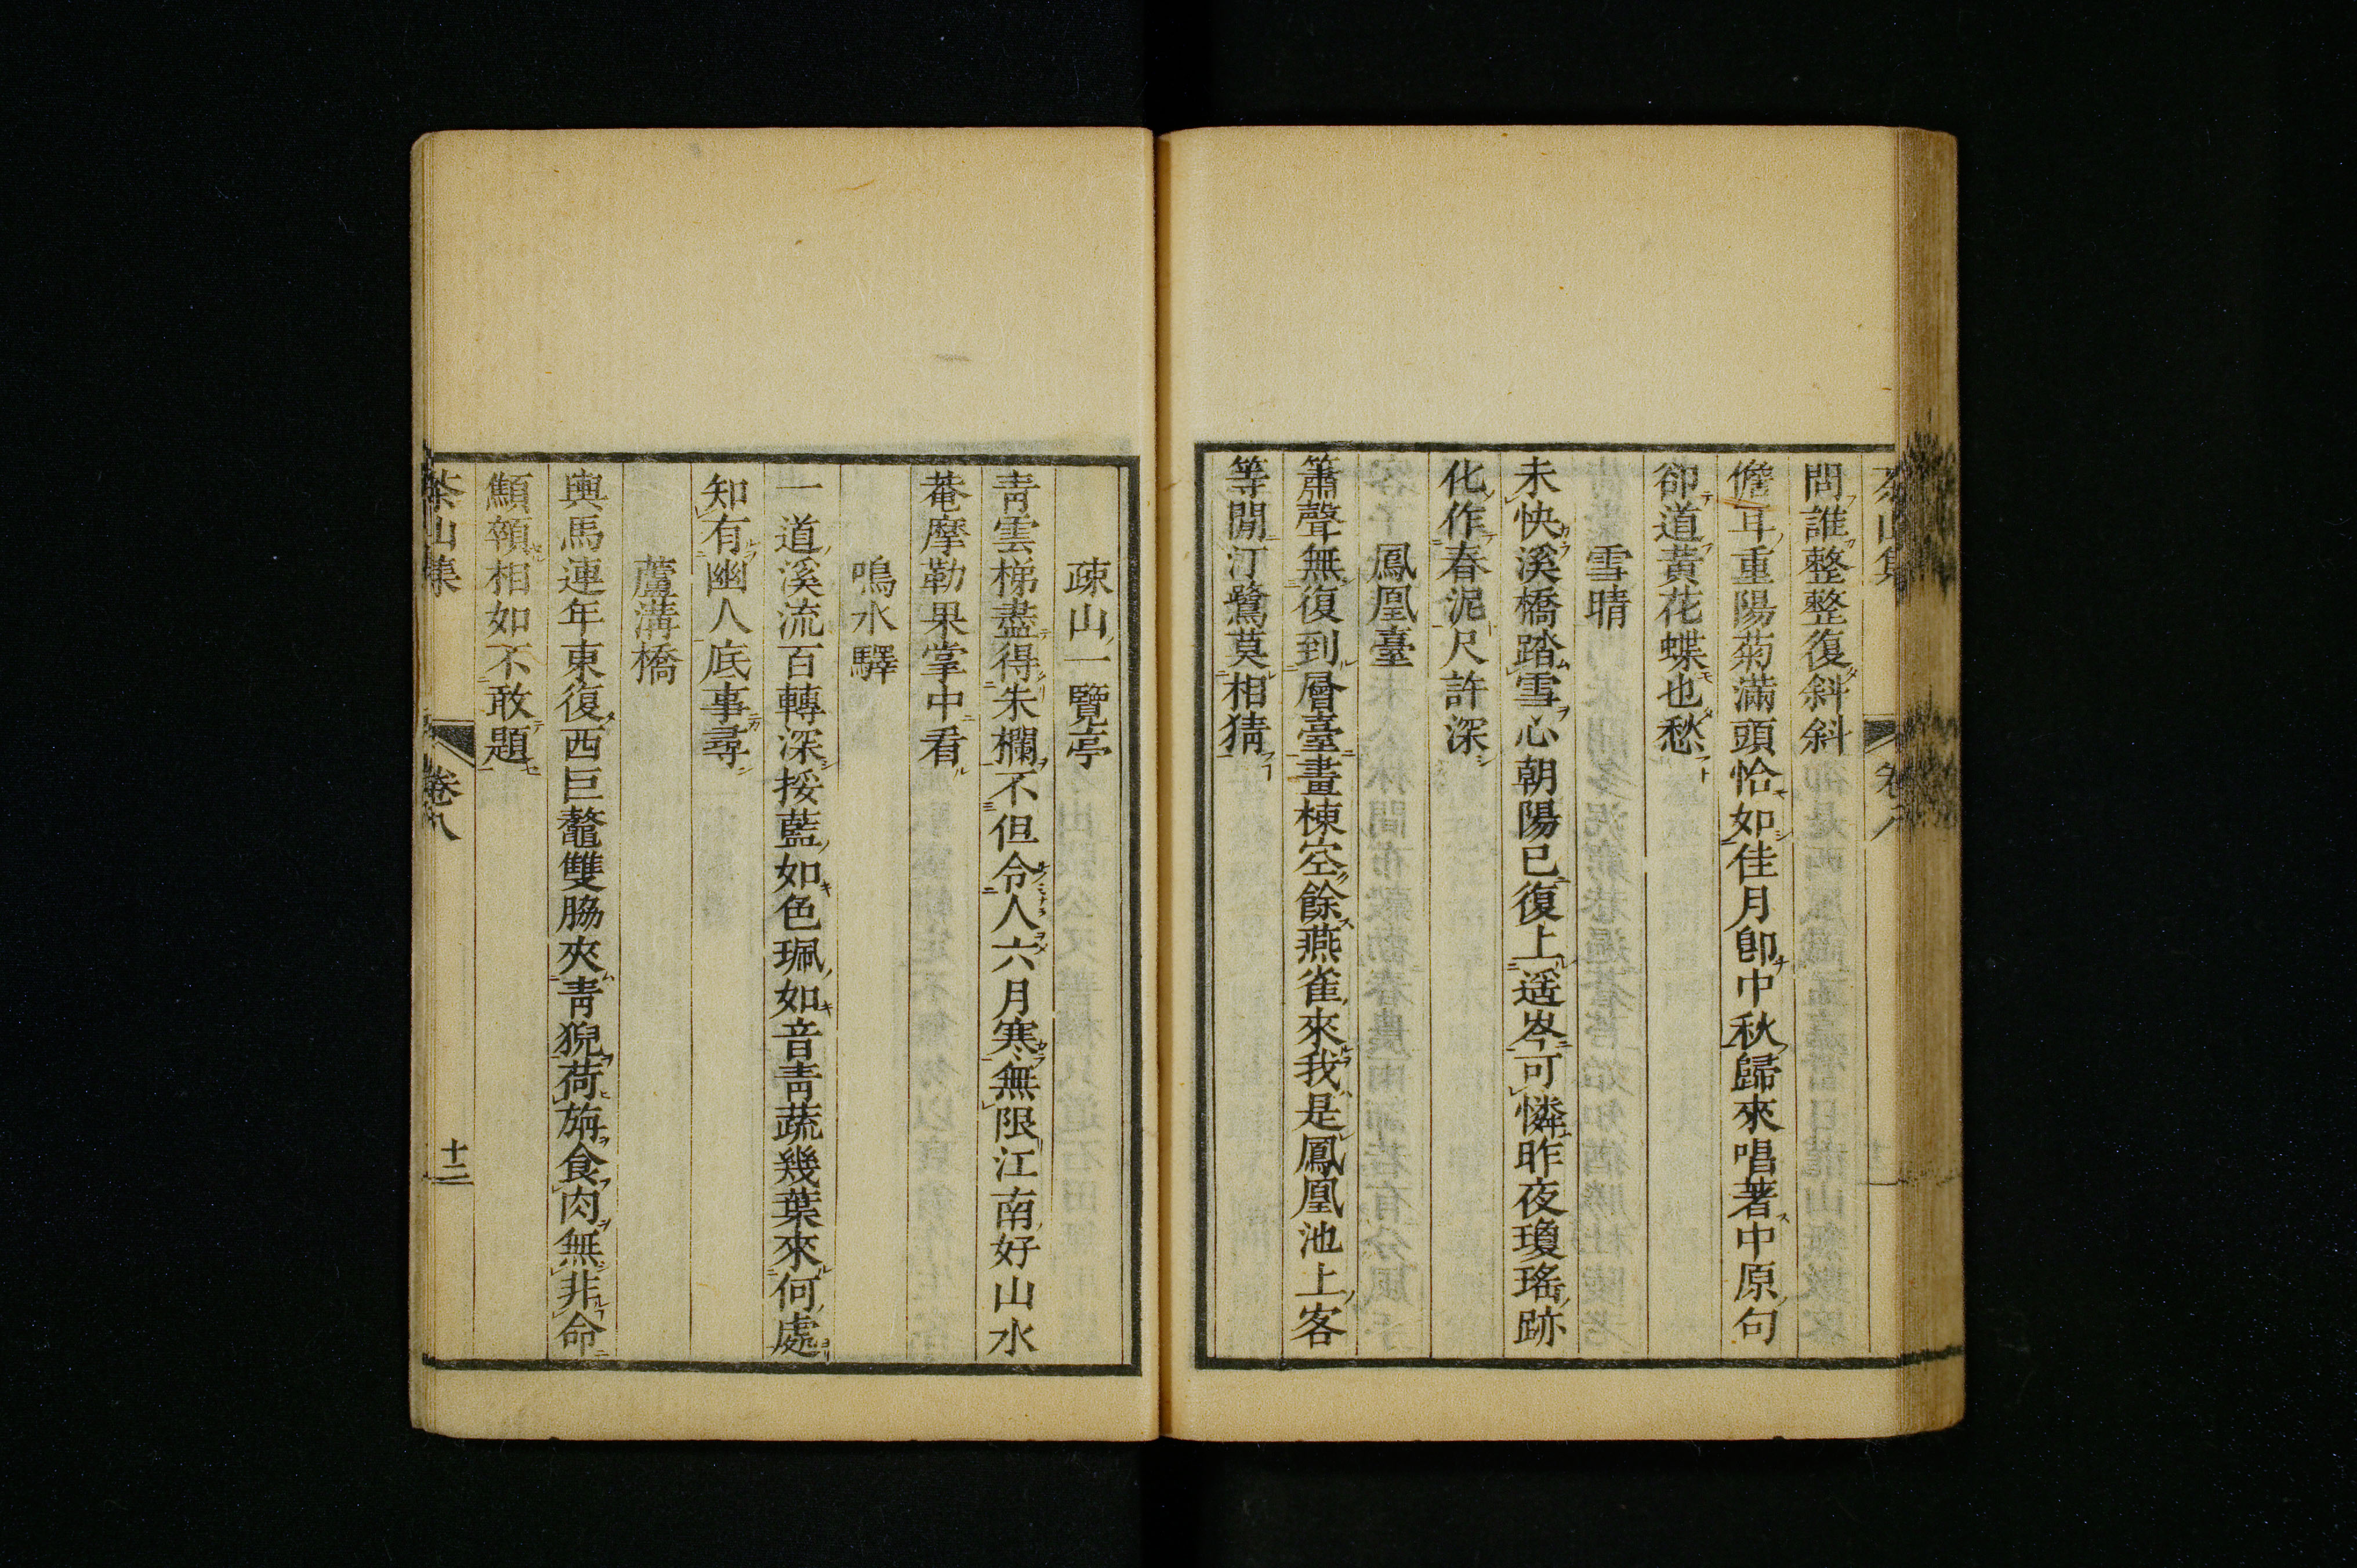 茶山集 卷八
問誰整整復斜斜
儋耳重陽菊滿頭恰如佳月卽中秋歸來唱著中原句
卻道黃花蝶也愁
雪晴
未快溪橋踏雪心朝陽已復上遥岑可憐昨夜瓊瑤跡
化作春泥尺許深
鳳凰臺
簫聲無復到層臺畫棟空餘燕雀來我是鳳凰池上客
等閒汀鷺莫相猜
疎山一覽亭
靑雲梯盡得朱欄不但令人六月寒無限江南好山水
菴摩勒果掌中看
鳴水驛
一道溪流百轉深挼藍如色珮如音靑蔬幾葉來何處
知有幽人底事尋
蘆溝橋
輿馬連年東復西巨鼇雙脇夾靑猊荷旃食肉無非命
顦顇相如不敢題
茶山集 卷八 十二